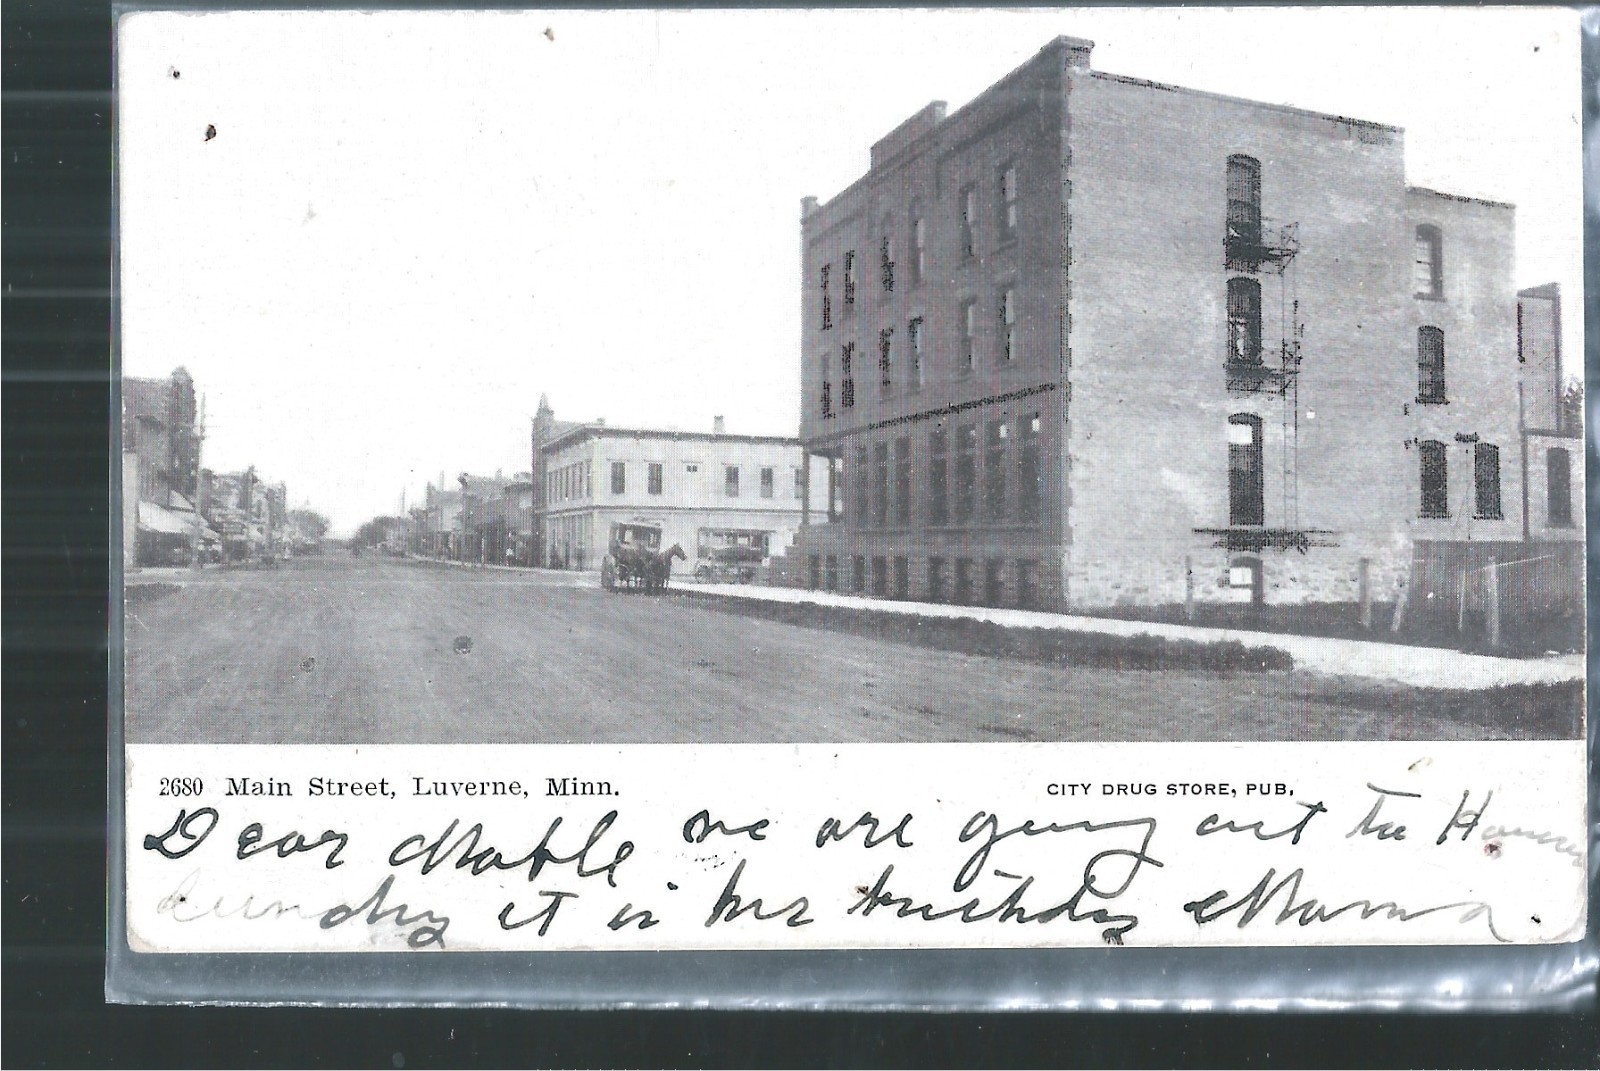 2680 Main Street, Luverne, Minn.
CITY DRUG STORE, PUB.
Dear Mable we are going out to
sunday it is her birthday Mama.